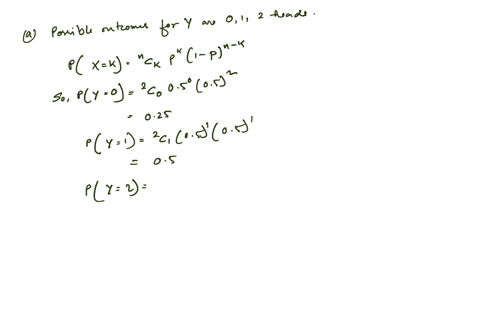 (a) Possible outcomes for Y are 0, 1, 2 heads.
P( X=K) = ⁿCₖ pᵏ (1-p)ⁿ⁻ᵏ
So, P(Y=0) = ²C₀ 0.5⁰ (0.5)²
= 0.25
P(Y=1) = ²C₁ (0.5)¹ (0.5)¹
= 0.5
P(Y=2) =